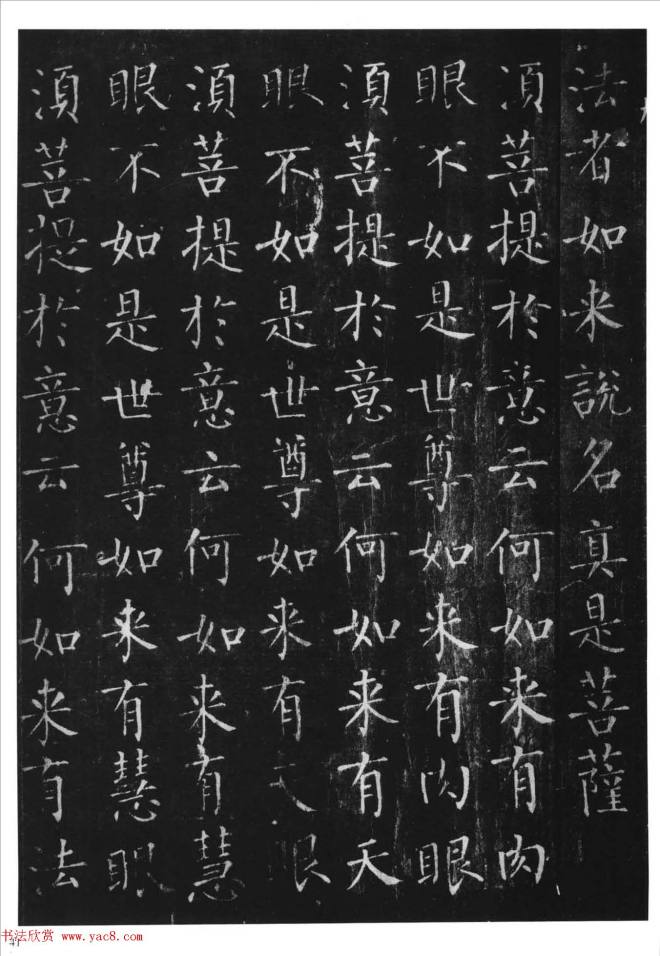 法者如来說名真是菩薩
須菩提於意云何如来有肉
眼不如是世尊如来有肉眼
須菩提於意云何如来有天
眼不如是世尊如来有天眼
須菩提於意云何如来有慧
眼不如是世尊如来有慧眼
須菩提於意云何如来有法
书法欣赏 www.yac8.com